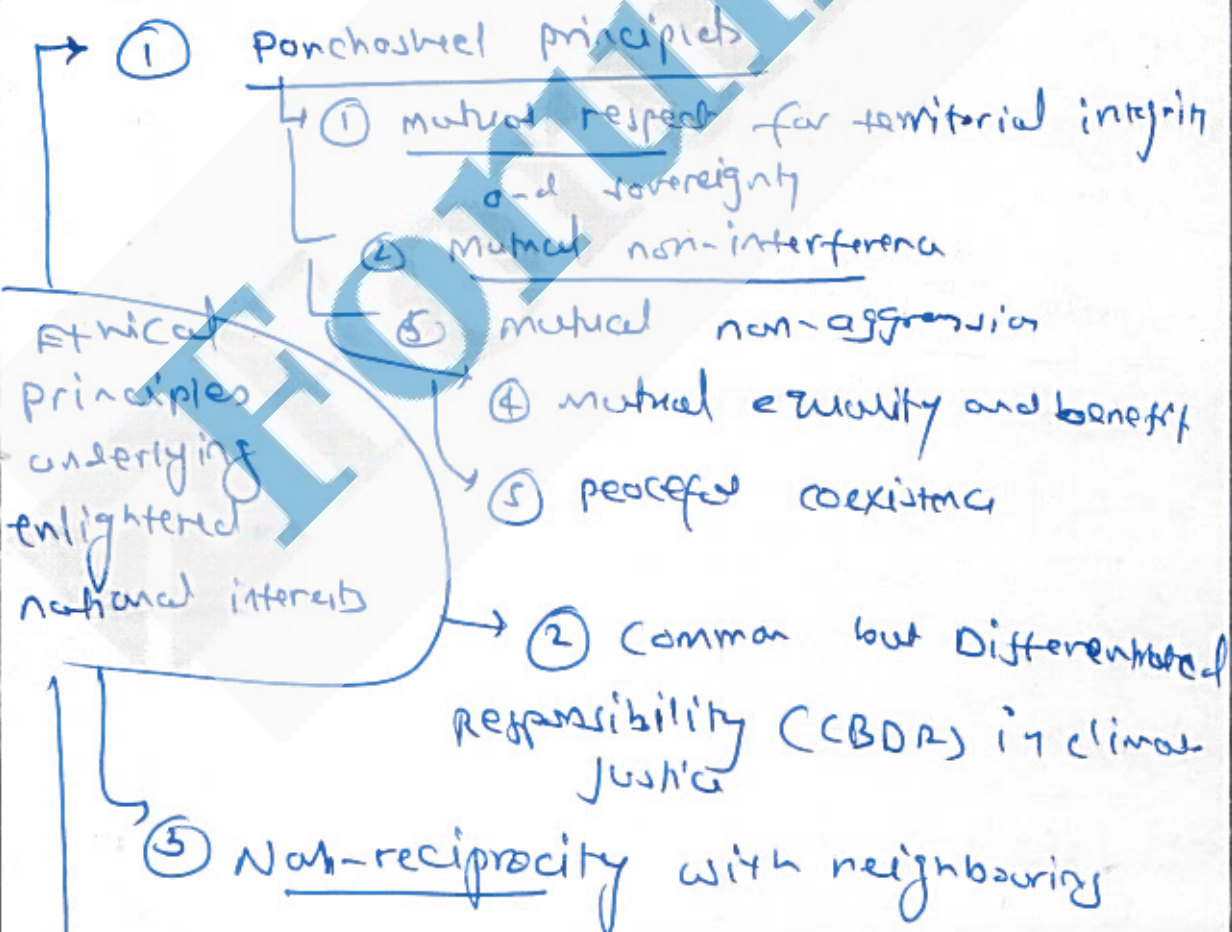 ① Panchasheel principles
① mutual respect for territorial integrity
and sovereignty
② Mutual non-interference
③ mutual non-aggression
④ mutual equality and benefit
⑤ peaceful coexistence
Ethical
principles
underlying
enlightened
national interests
② Common but Differentiated
Responsibility (CBDR) in climate
Justice
③ Non-reciprocity with neighbouring
Forum